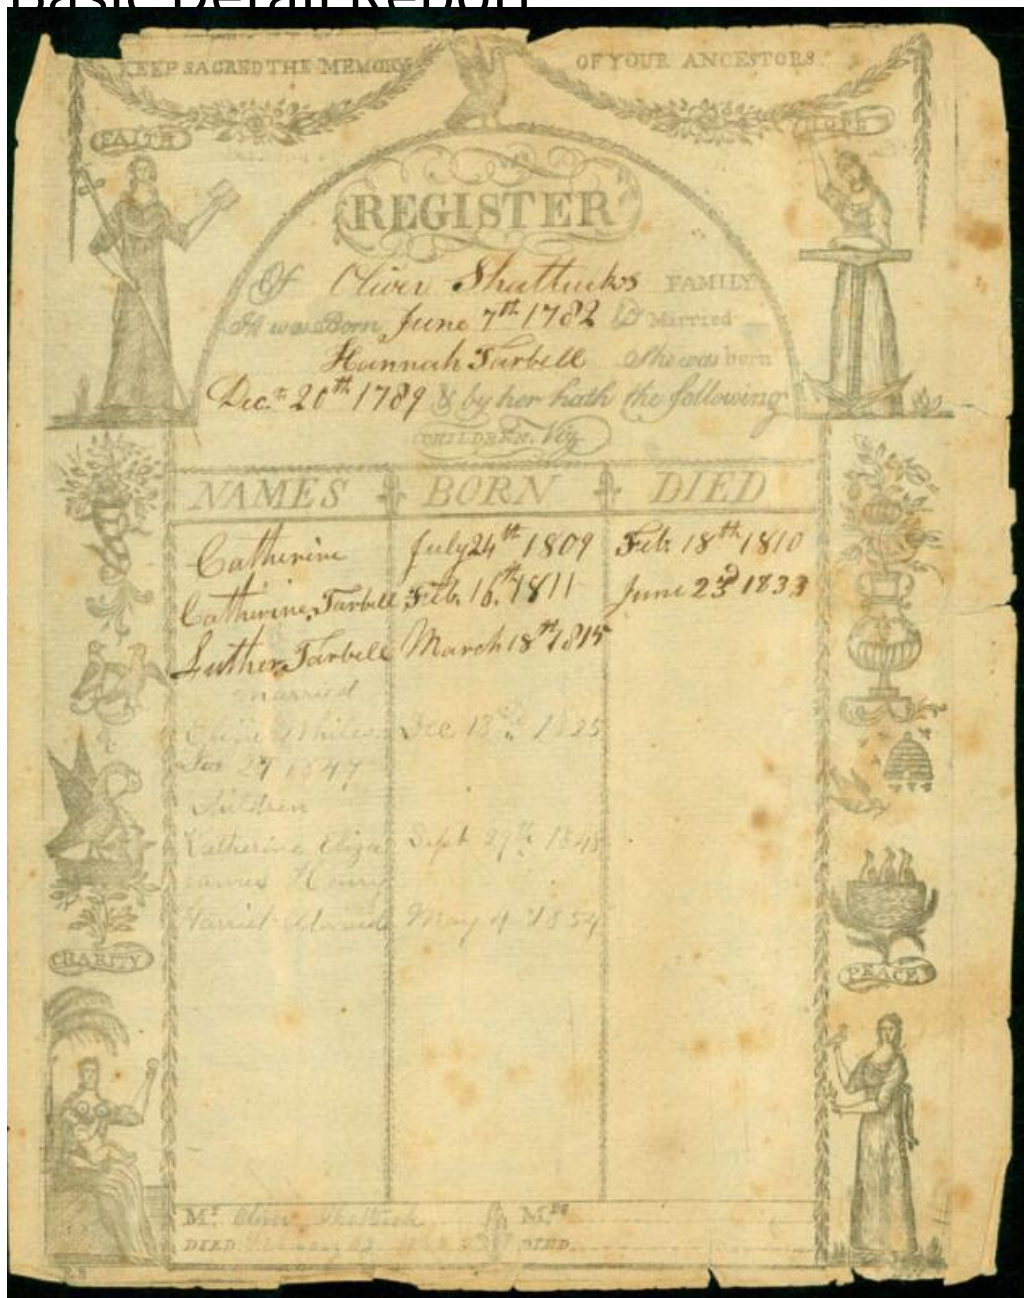 Basic Detail Report
KEEP SACRED THE MEMORY OF YOUR ANCESTORS.
FAITH
HOPE
REGISTER
Of Oliver Shattucks FAMILY
He was Born June 7th 1782 & Married
Hannah Tarbell She was born
Dec.r 20th 1789 & by her hath the following
CHILDREN. Viz
NAMES BORN DIED
Catherine July 24th 1809 Feb. 18th 1810
Catherine, Tarbell Feb. 16th 1811 June 23d 1833
Luther Tarbell March 18th 1815
married
Dec 1825
Nov 29 1847
Children
Katherine Eliza Sept 29th 1848
James Henry
Harriet May 4 1854
CHARITY
PEACE
Mr Oliver Shattuck Mrs
DIED DIED